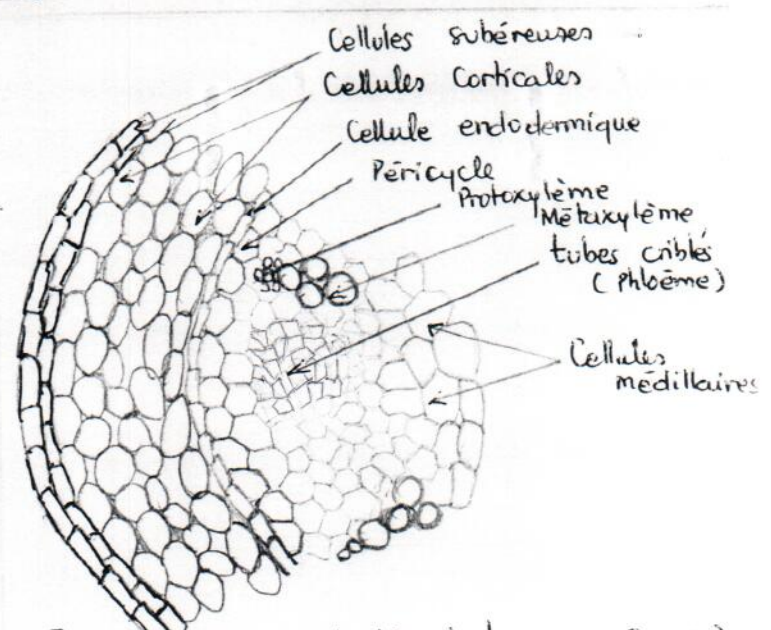 Cellules subéreuses
Cellules Corticales
Cellule endodermique
Péricycle
Protoxylème
Métaxylème
tubes criblés
(Phloème)
Cellules
médillaires